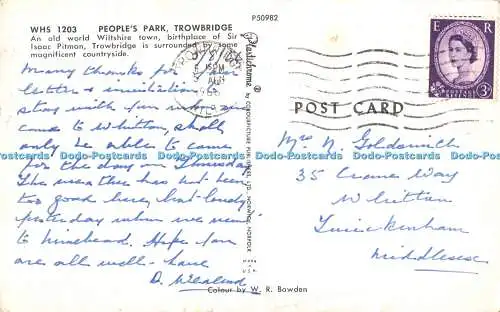 P50982
WHS 1203 PEOPLE'S PARK, TROWBRIDGE
An old world Wiltshire town, birthplace of Sir
Isaac Pitman, Trowbridge is surrounded by some
magnificent countryside.
Many thanks for your
letter & invitation
stay with you when
come to Whitton, shall
only be able to come
for the day on Thursday
The weather has not been
too good here, but lovely
yesterday when we went
to Minehead. Hope you
are all well - love
D.
Plastichrome
by COLOURPICTURE PUBLISHERS, LTD.
U.S.A.
Colour by W. R. Bowden
POST CARD
E R
POSTAGE
REVENUE
3D
Mrs N. Goldswich
35 Crane Way
Whitton
Twickenham
Middlesex
Postcards Postcards Postcards Postcards Postcards Postcards